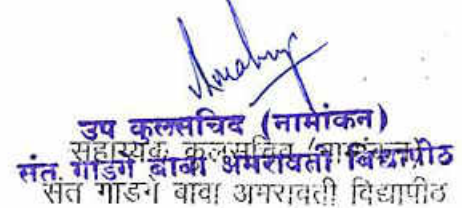 उप कुलसचिव (नामांकन)
सहाय्यक कुलसचिव (नामांकन)
संत गाडगे बाबा अमरावती विद्यापीठ
संत गाडगे बाबा अमरावती विद्यापीठ